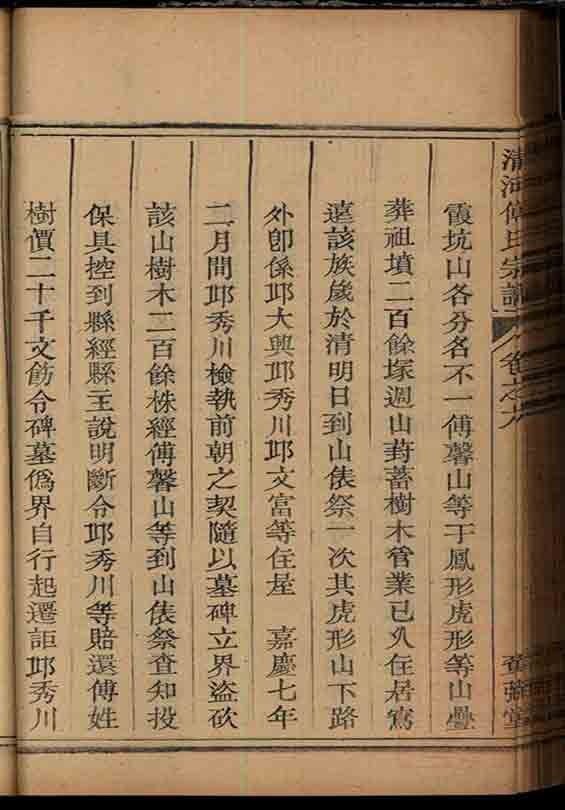 清河傅氏宗譜 卷之九
霞坑山各分名不一傅馨山等于鳳形虎形等山疊
葬祖墳二百餘塚週山葑蓄樹木管業已久住居寫
遠該族歲於清明日到山俵祭一次其虎形山下路
外卽係邓大興邓秀川邓文富等住屋 嘉慶七年
二月間邓秀川檢執前朝之契隨以墓碑立界盜砍
該山樹木二百餘株經傅馨山等到山俵祭查知投
保具控到縣經縣主說明斷令邓秀川等賠還傅姓
樹價二十千文飭令碑墓僞界自行起遷詎邓秀川